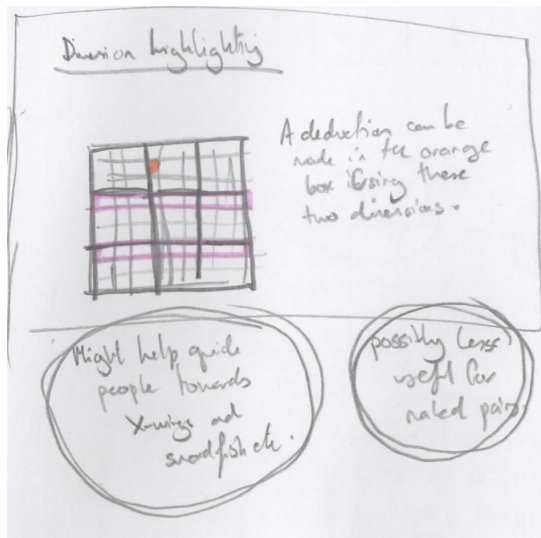 Dimension highlighting
A deduction can be
made in the orange
box using these
two dimensions.
Might help guide
people towards
X-wings and
swordfish etc.
possibly less
useful for
naked pairs